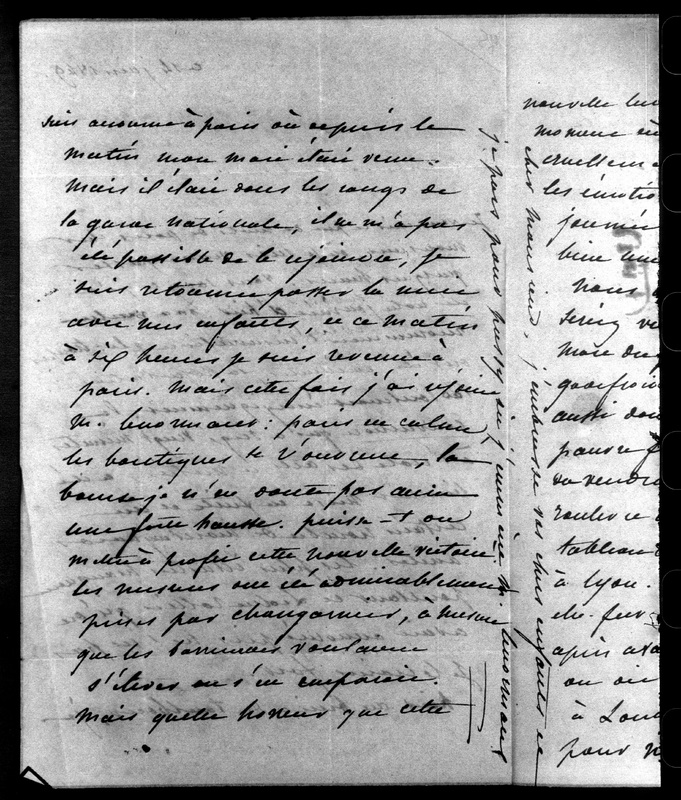 ce 14 juin 1849.
suis accourue à paris où depuis le
matin mon mari était venu.
mais il était dans les rangs de
la garde nationale, il ne m'a pas
été possible de le rejoindre, je
suis retournée passer la nuit
avec mes enfants, et ce matin
à six heures je suis revenue à
paris. mais cette fois j'ai rejoint
M. Lenormant: paris est calme,
les boutiques se r'ouvrent, la
bourse je n'en doute pas aura
une forte hausse. puisse-t on
mettre à profit cette nouvelle victoire.
les mesures ont été admirablement
prises par changarnier, à mesure
que les barricades voulaient
s'élever on s'en emparait.
mais quelle horreur que cette
je pars pour passy où j'emmène M. Lenormant
cher monsieur, j'embrasse vos chers enfants et
nouvelle
moment où
cruelleme
les émotio
journée
bien
nous
serez
mort du
quoi
aussi don
pauvre f
du vendre
rouler
tableau
à Lyon.
che-feu
après ava
on
à Lou
pour